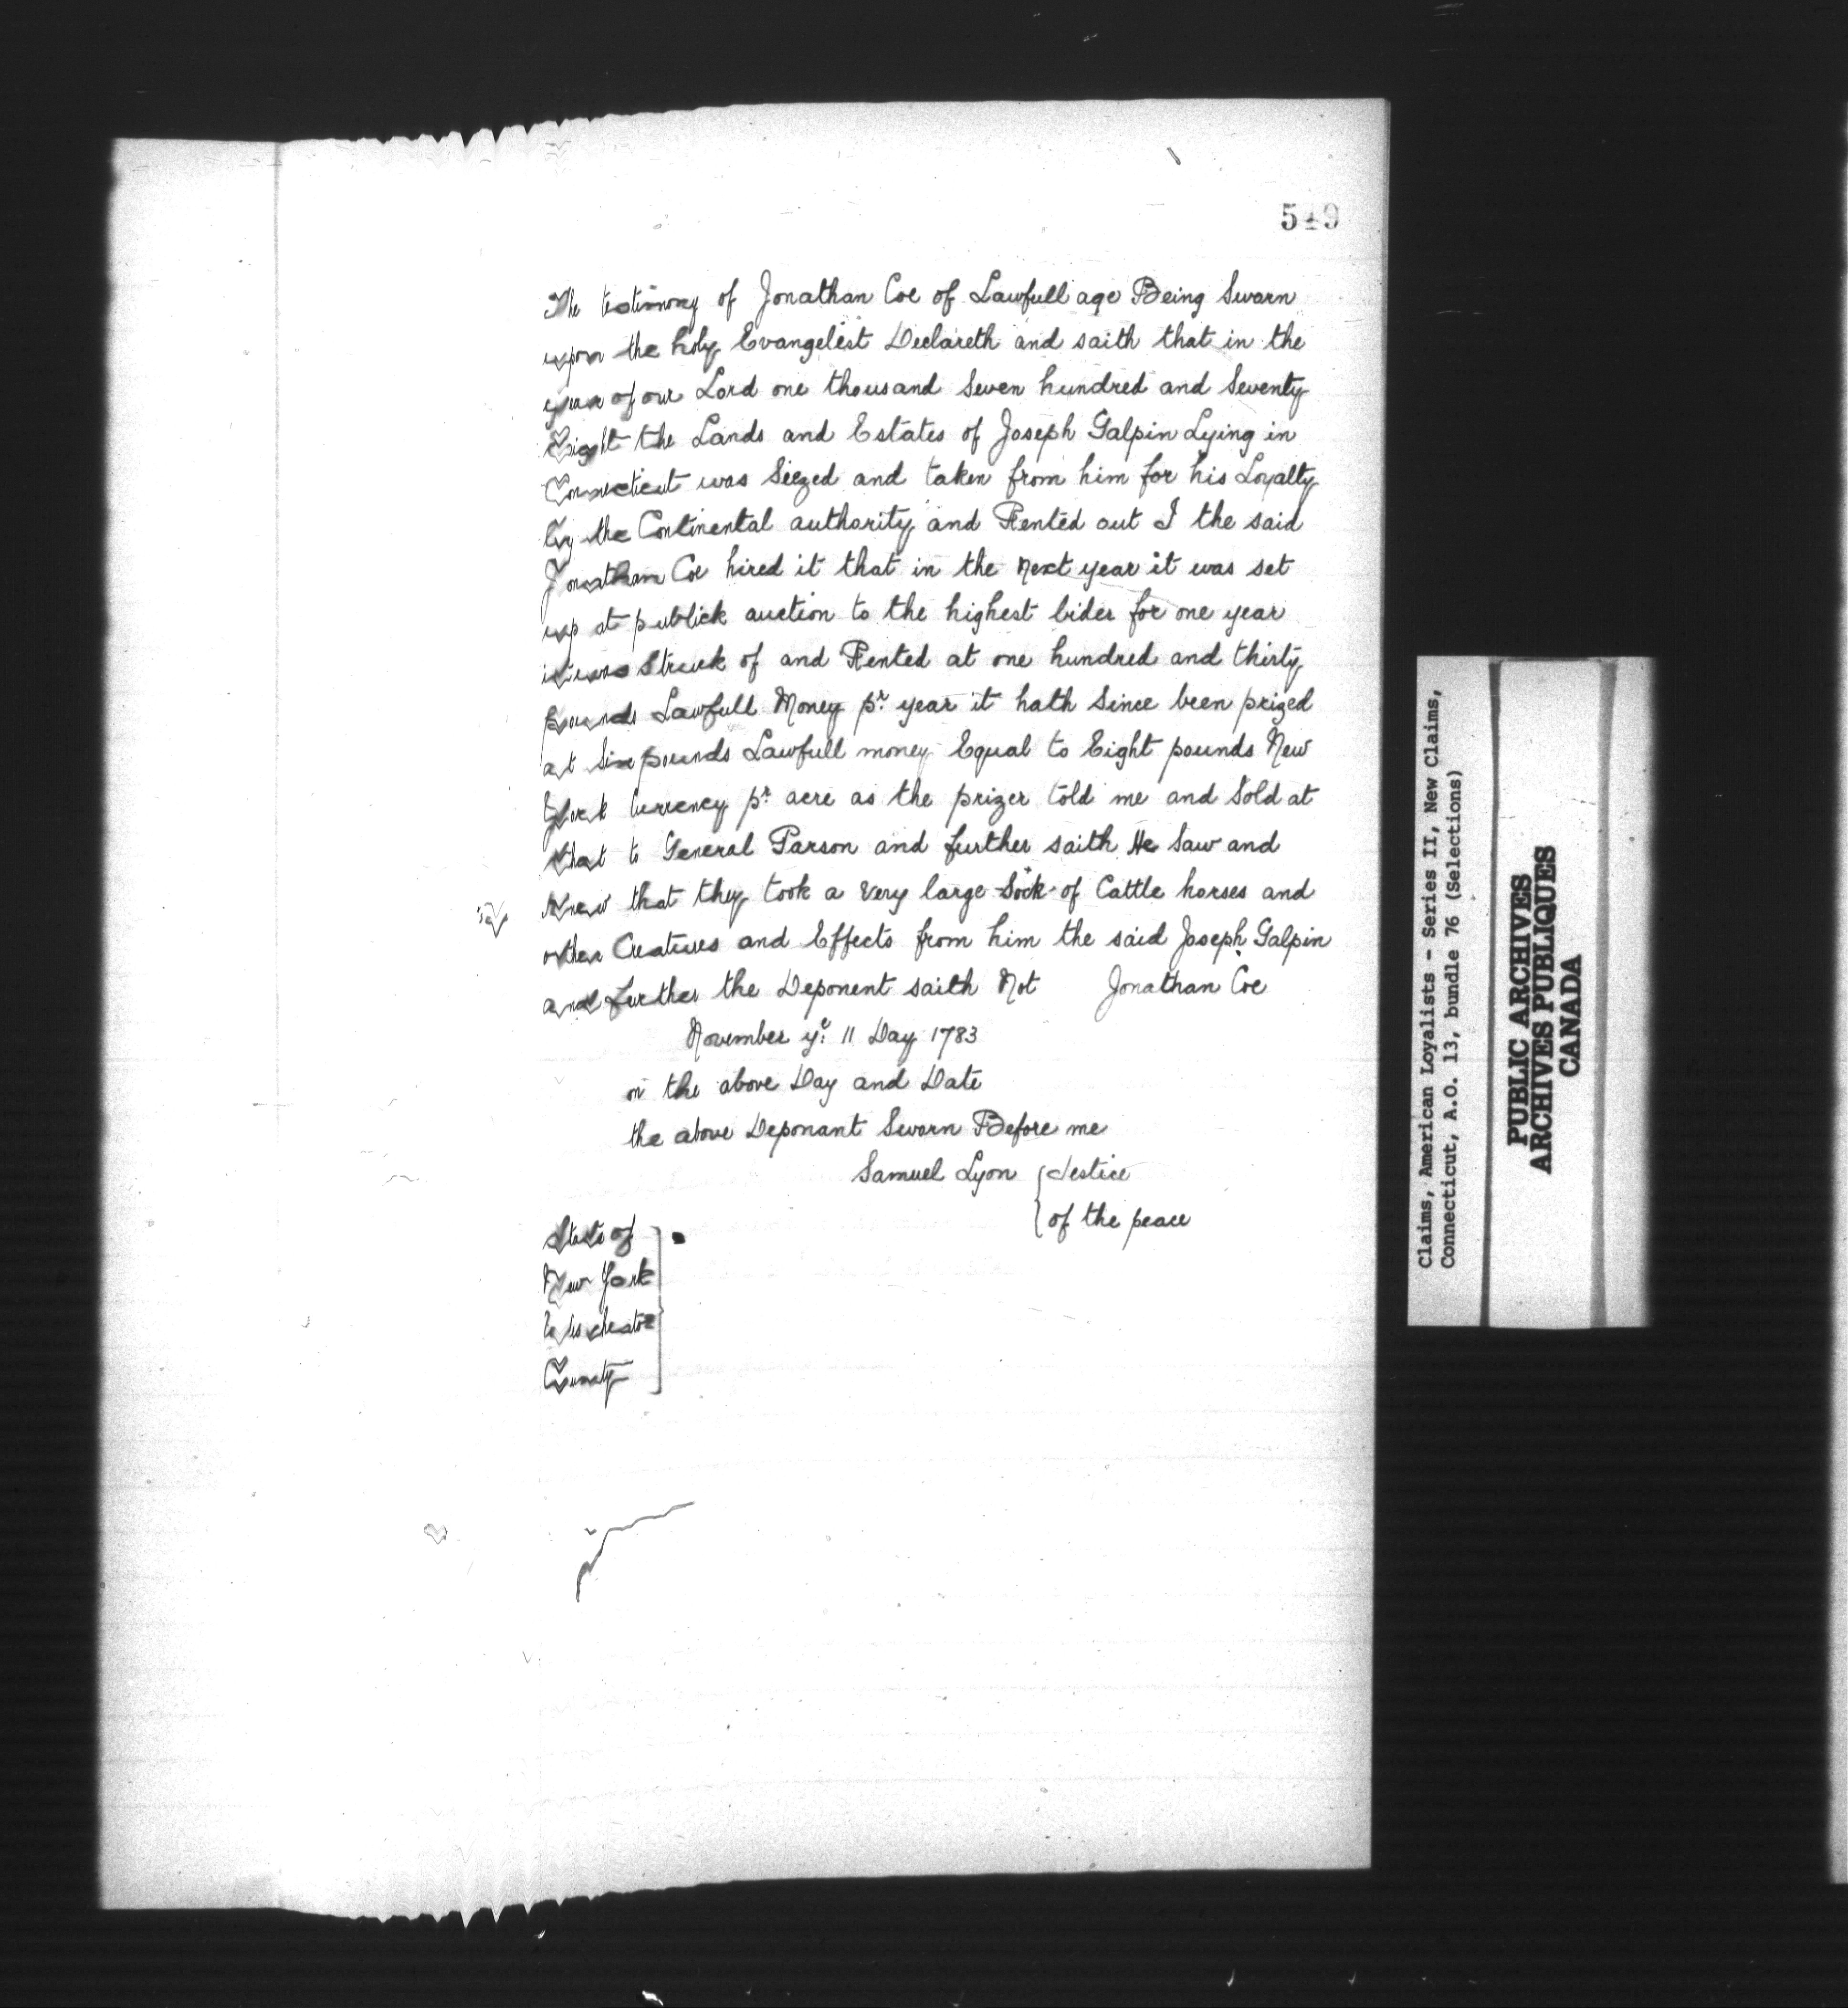 549
The testimony of Jonathan Coe of Lawfull age Being Sworn
upon the holy Evangelist Declareth and saith that in the
year of our Lord one thousand Seven hundred and Seventy
Eight the Lands and Estates of Joseph Galpin Lying in
Connecticut was Siezed and taken from him for his Loyalty
by the Continental authority and Rented out I the said
Jonathan Coe hired it that in the Next year it was set
up at publick auction to the highest bider for one year
it was Struck of and Rented at one hundred and thirty
pounds Lawfull Money pr year it hath Since been prized
at Six pounds Lawfull money Equal to Eight pounds New
York Currency pr acre as the prizer told me and Sold at
that to General Parson and further saith He Saw and
knew that they took a very large Sock of Cattle horses and
other Creatures and Effects from him the said Joseph Galpin
and further the Deponent saith Not Jonathan Coe
November ye 11 Day 1783
on the above Day and Date
the above Deponant Sworn Before me
Samuel Lyon { Jestice
of the peace
State of
New York
Weschester
County
Claims, American Loyalists - Series II, New Claims,
Connecticut, A.O. 13, bundle 76 (Selections)
PUBLIC ARCHIVES
ARCHIVES PUBLIQUES
CANADA